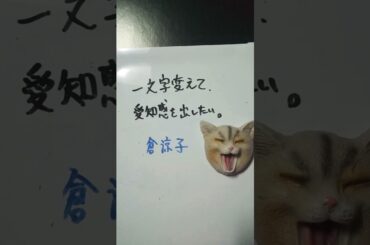 一文字変えて、
愛知感を出したい。
倉涼子